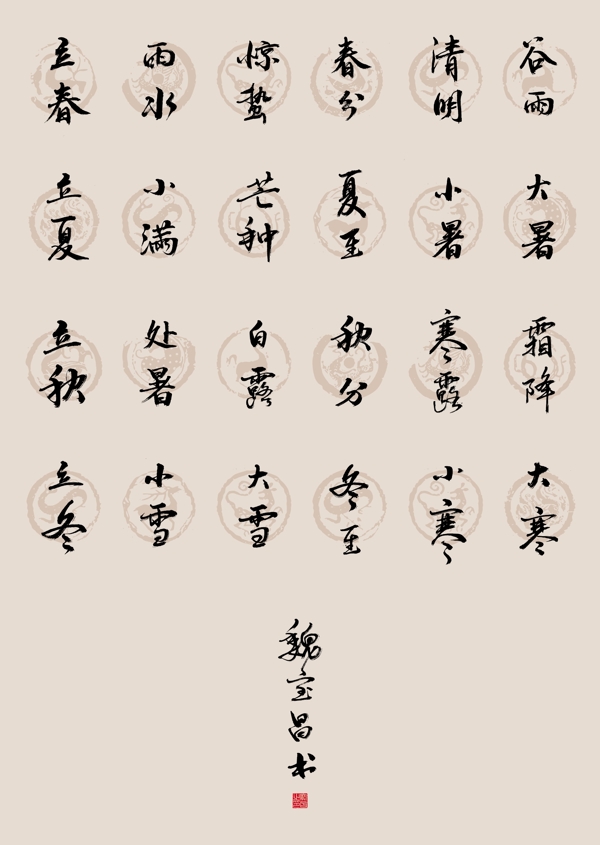 立春 雨水 惊蛰 春分 清明 谷雨
立夏 小满 芒种 夏至 小暑 大暑
立秋 处暑 白露 秋分 寒露 霜降
立冬 小雪 大雪 冬至 小寒 大寒
魏宝昌书